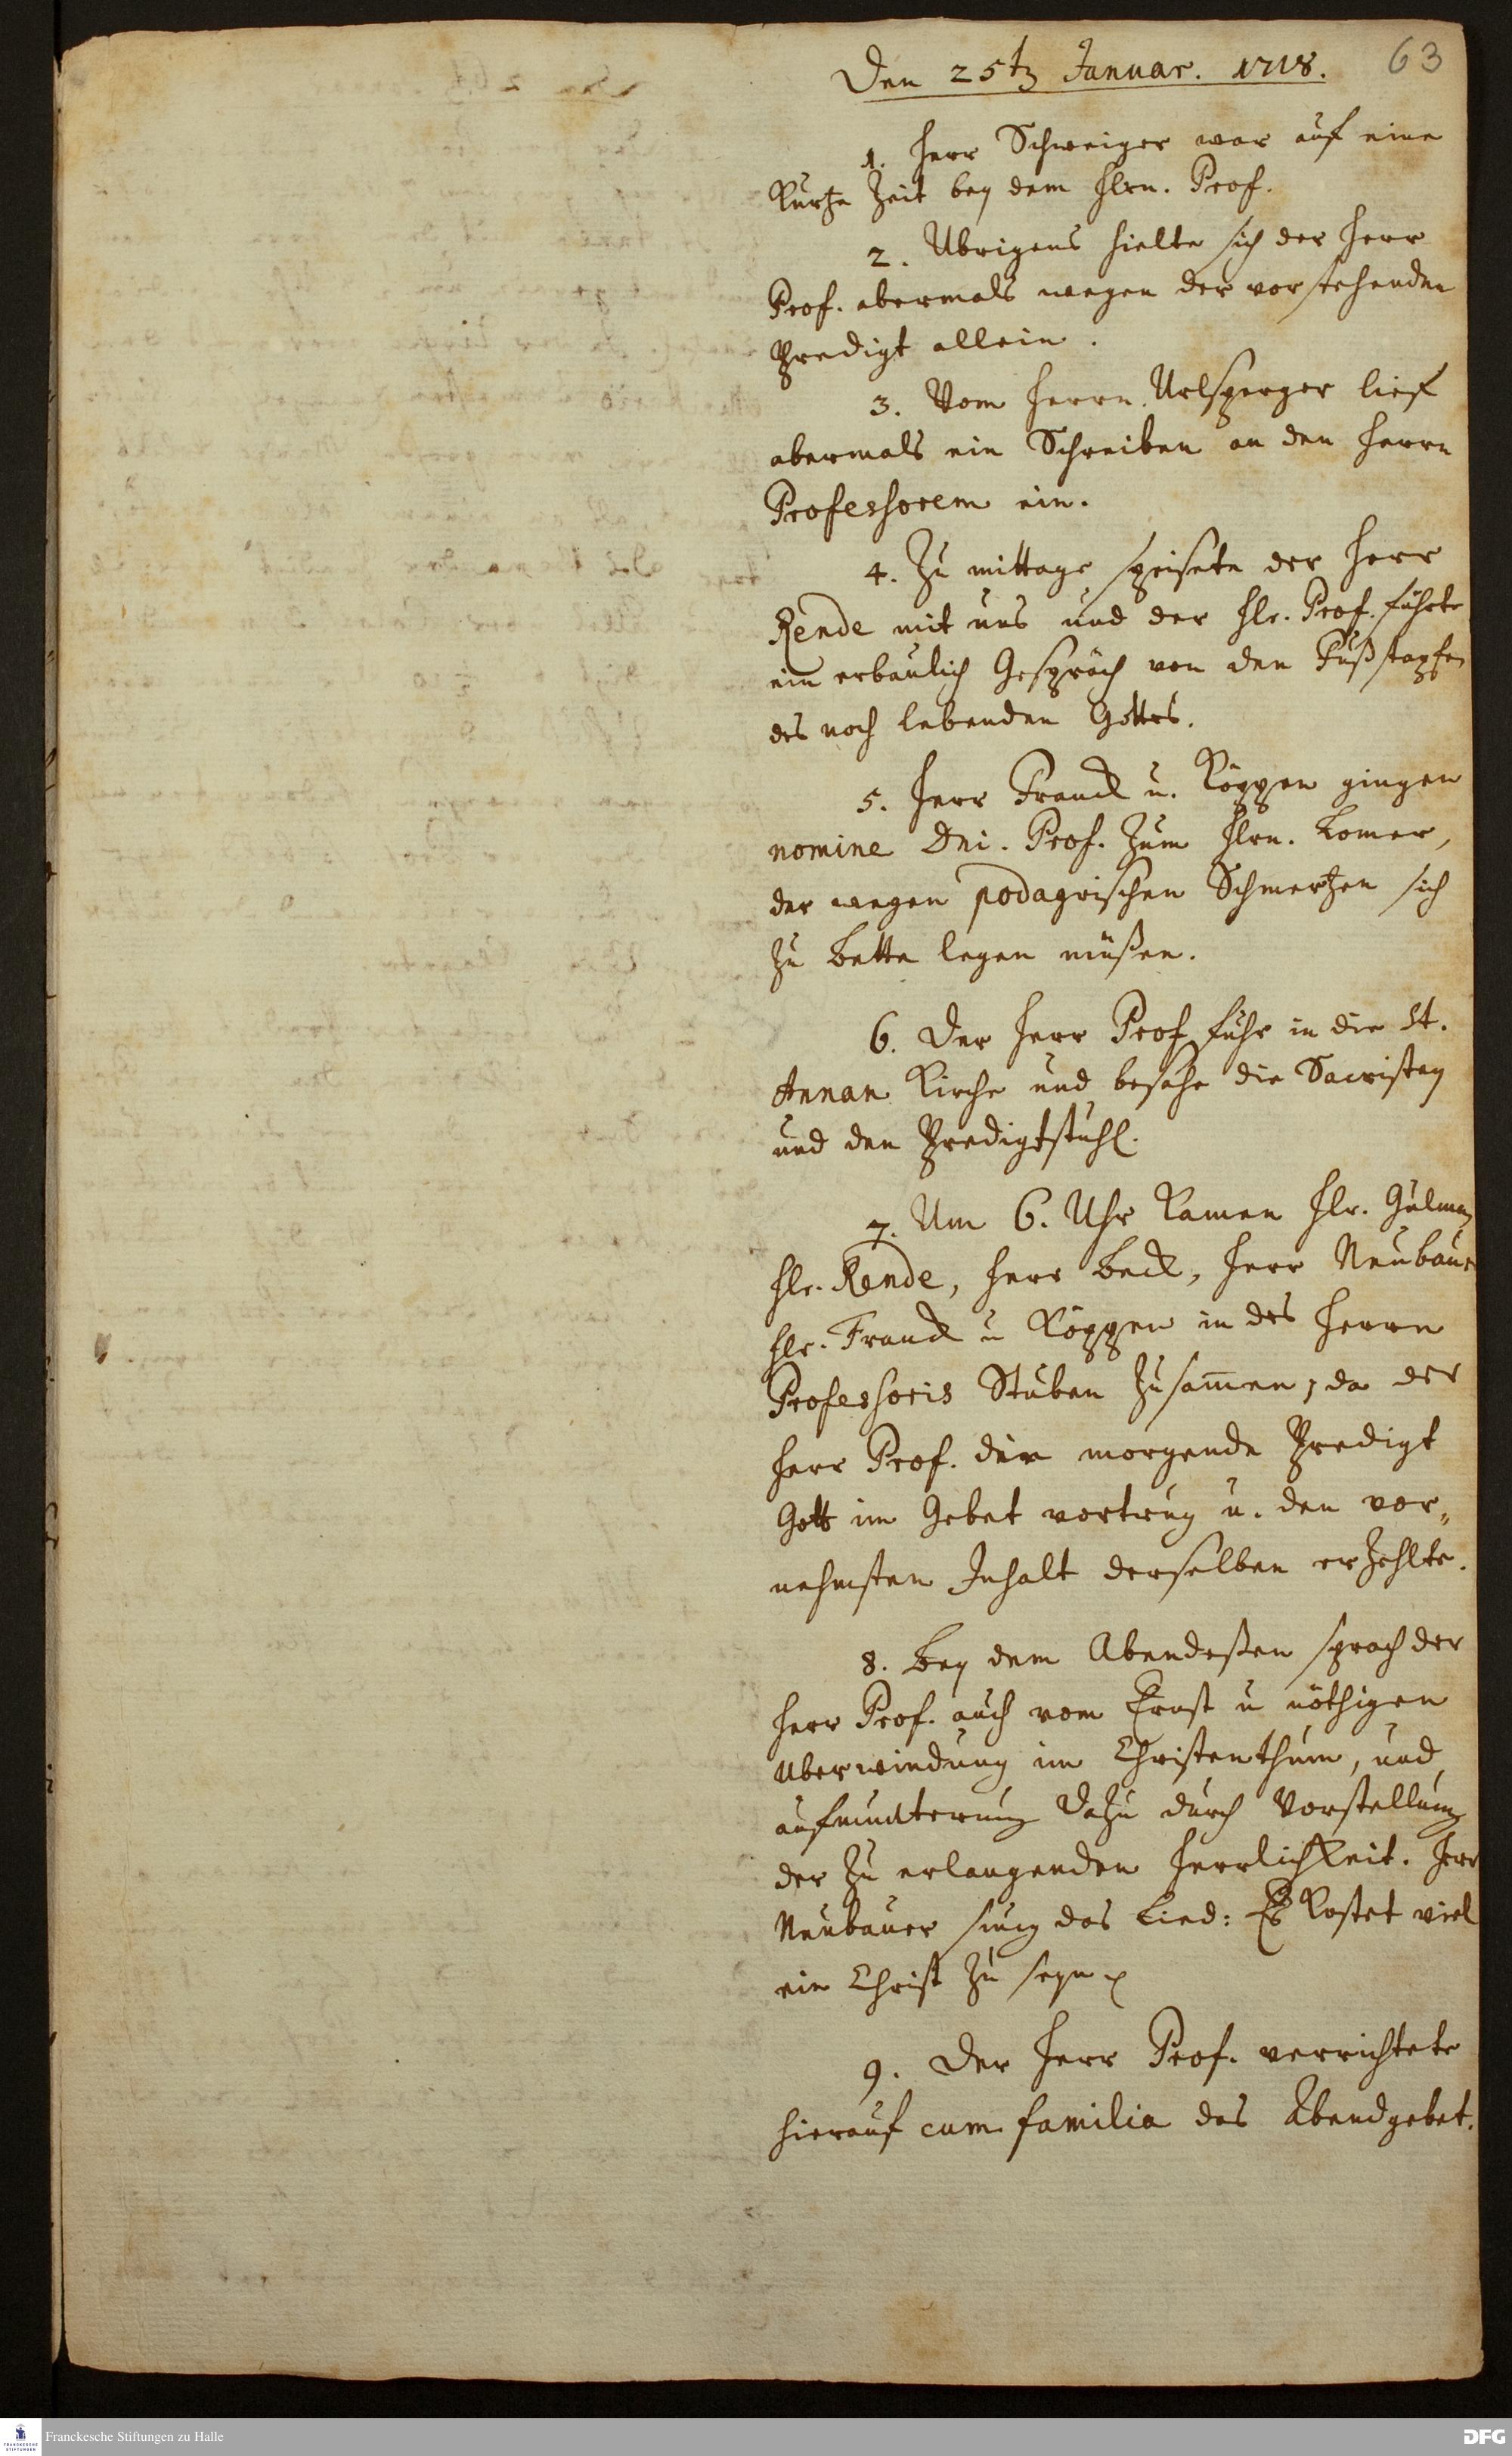 63
Den 25tn Januar. 1718.
1. Herr Schweiger war auf eine
kurtze Zeit bey dem Hrn. Prof.
2. Ubrigens hielte sich der Herr
Prof. abermals wegen der vorstehenden
Predigt allein.
3. Vom Herrn Urlsperger lief
abermals ein Schreiben an den Herrn
Professorem ein.
4. Zu mittage speisete der Herr
Rende mit uns und der Hr. Prof. führte
ein erbaulich Gespräch von den Fußstapfen
des noch lebenden Gottes.
5. Herr Franck u. Köppen gingen
nomine Dni. Prof. zum Hrn. Lomer,
der wegen podagrischen Schmertzen sich
zu Bette legen müßen.
6. Der Herr Prof fuhr in die St.
Annan Kirche und besahe die Sacristey
und den Predigtstuhl.
7. Um 6. Uhr kamen Hr. Gülman
Hr. Rende, Herr Beck, Herr Neubauer
Hr. Franck u Köppen in des Herrn
Professoris Stuben zusam̄en, da der
Herr Prof. die morgende Predigt
Gott im Gebet vortrug u. den vor„
nehmsten Inhalt derselben erzehlte.
8. Bey dem Abendeßen sprach der
Herr Prof. auch vom Ernst u nöthigen
Uberwindung im Christenthum, und
aufmunterung dazu durch Vorstellung
der zu erlangenden Herrlichkeit. Herr
Neubauer sung das Lied: Es kostet viel
ein Christ zu seyn
9. Der Herr Prof. verrichtete
hierauf cum familia das Abendgebet.
Franckesche Stiftungen zu Halle
DFG